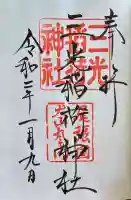 奉拝
三光稲荷神社
令和二年一月九日
三光
稲荷
神社